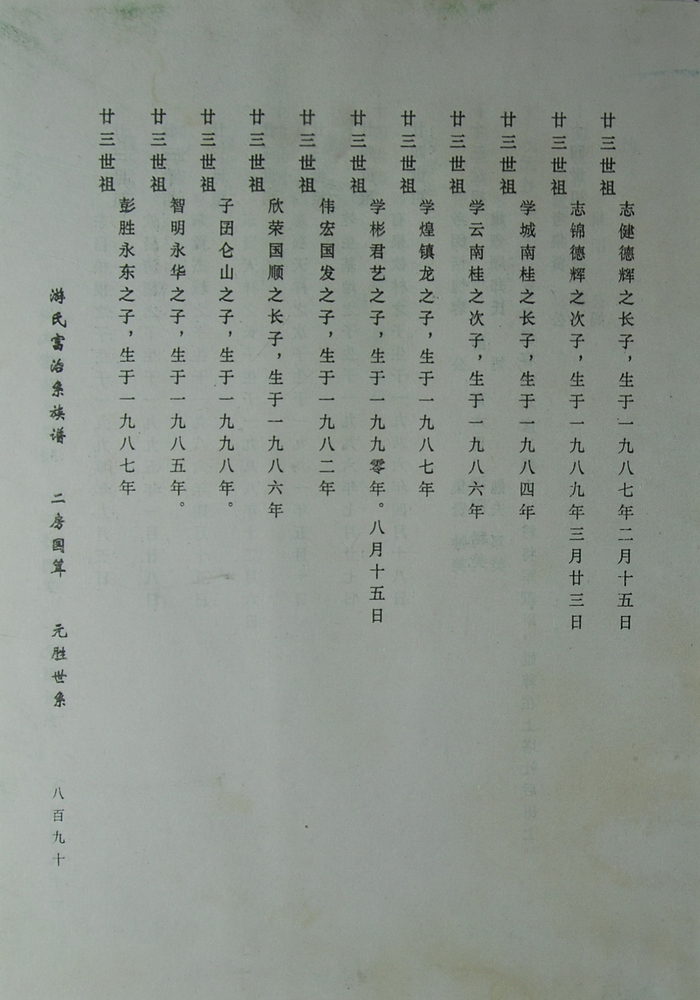 廿三世祖
志健德辉之长子，生于一九八七年二月十五日
廿三世祖
志锦德辉之次子，生于一九八九年三月廿三日
廿三世祖
学城南桂之长子，生于一九八四年
廿三世祖
学云南桂之次子，生于一九八六年
廿三世祖
学煌镇龙之子，生于一九八七年
廿三世祖
学彬君艺之子，生于一九九零年。八月十五日
廿三世祖
伟宏国发之子，生于一九八二年
廿三世祖
欣荣国顺之长子，生于一九八六年
廿三世祖
子囝仑山之子，生于一九九八年。
廿三世祖
智明永华之子，生于一九八五年。
廿三世祖
彭胜永东之子，生于一九八七年
游氏富治系族谱 二房国算 元胜世系 八百九十